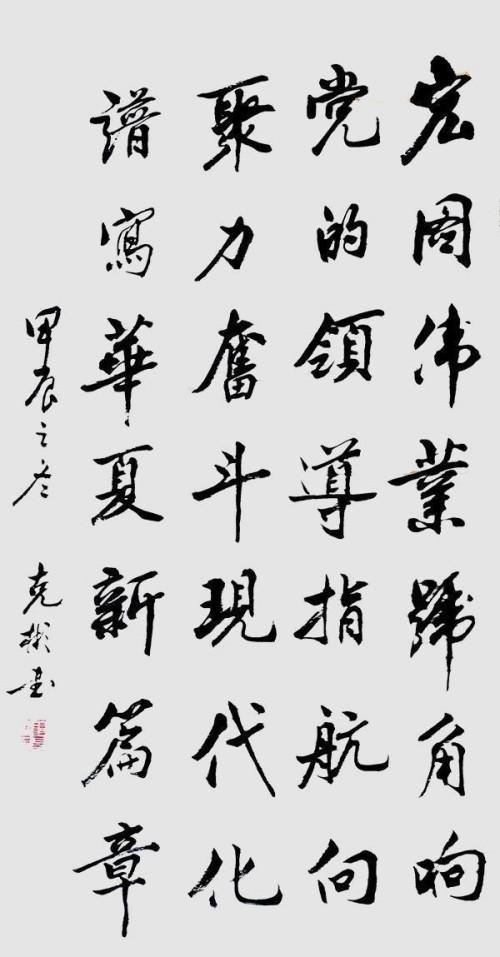 宏图伟业號角响
党的領導指航向
聚力奮斗現代化
譜寫華夏新篇章
甲辰之冬 克彬書